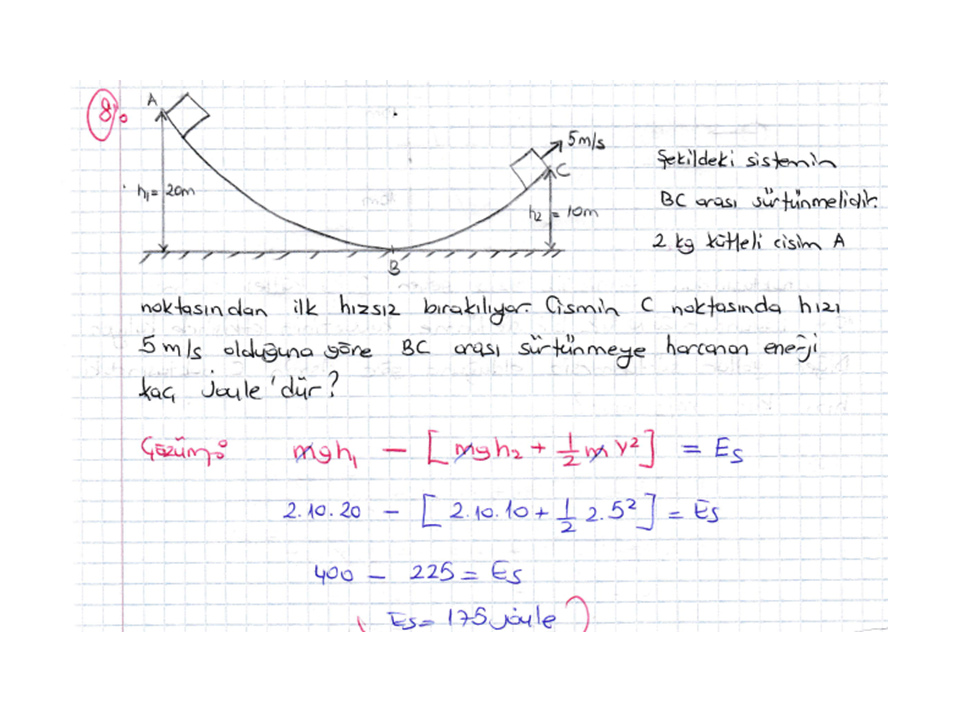 8.
A
5 m/s
C
h1 = 20m
h2 = 10m
B
Şekildeki sistemin
BC arası sürtünmelidir.
2 kg kütleli cisim A
noktasından ilk hızsız bırakılıyor. Cismin C noktasında hızı
5 m/s olduğuna göre BC arası sürtünmeye harcanan enerji
kaç joule'dür?
Çözüm: mgh₁ − [mgh₂ + 1/2 m v²] = Es
2.10.20 − [2.10.10 + 1/2 2.5²] = Es
400 − 225 = Es
Es = 175 joule